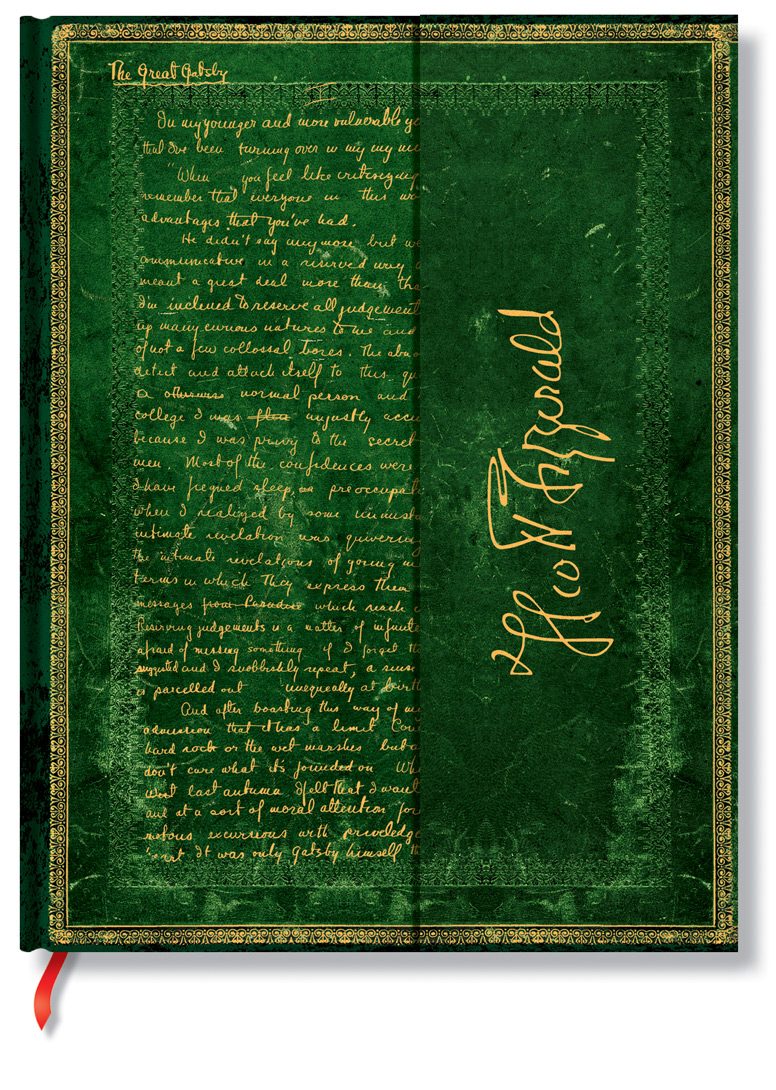 The Great Gatsby
I
In my younger and more vulnerable ye
that I've been turning over in my my mi
"When you feel like critisizing
remember that everyone in this wo
advantages that you've had.
He didn't say any more but we
communicative in a reserved way a
meant a great deal more than tha
I'm inclined to reserve all judgement
up many curious natures to me and
of not a few collossal bores. The abno
detect and attach itself to this qu
a otherwise normal person and
college I was unjustly accu
because I was privy to the secret
men. Most of the confidences were
I have feigned sleep, preoccupati
when I realized by some unmista
intimate revelation was quivering
the intimate revelations of young m
terms in which they express them
messages from Paradise which reach
Reserving judgements is a matter of infinite
afraid of missing something if I forget th
suggested and I snobbishly repeat, a sense
is parcelled out unequally at birth
And after boasting this way of my
admission that it has a limit Con
hard rock or the wet marshes but a
don't care what it's founded on Wh
West last autumn I felt that I want
and at a sort of moral attention for
excursions with priviledge
heart It was only Gatsby himself th
F Scott Fitzgerald